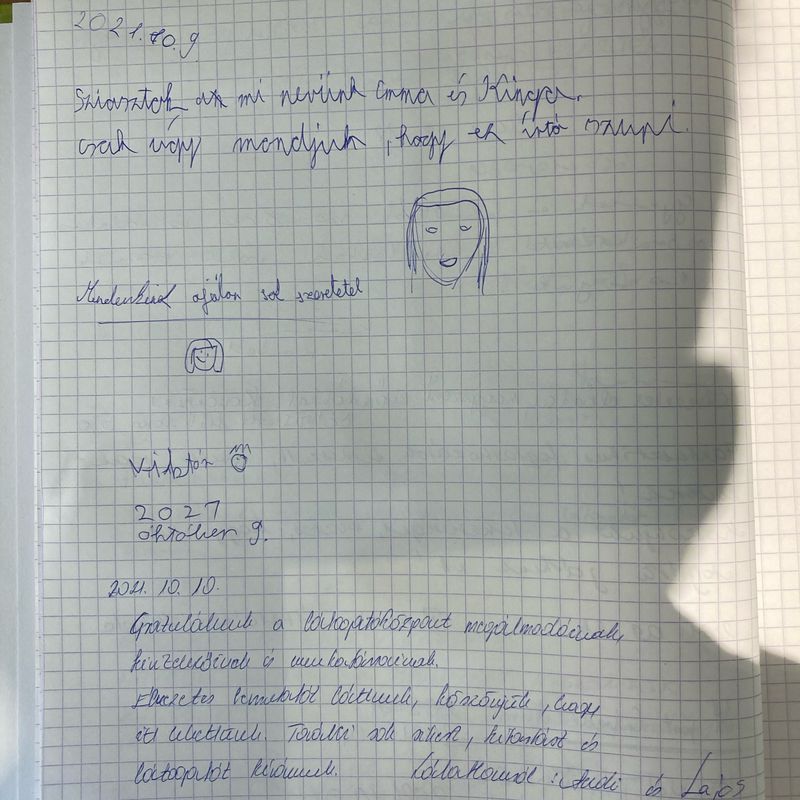 2021.10.9.
Sziasztok az mi nevünk Emma és Kinga.
csak úgy mondjuk, hogy ek írtó szupi.
Mindenkinek ajálom sok szeretetel
Viktor
2021
október 9.
2021. 10. 10.
Gratulálunk a látogatóközpont megálmodóinak,
kivitelezőinek és munkatársainak.
tárlatot láttunk, köszönjük, hogy
itt lehettünk. További sok sikert, kitartást és
látogatót kívánunk. : Andi és Lajos